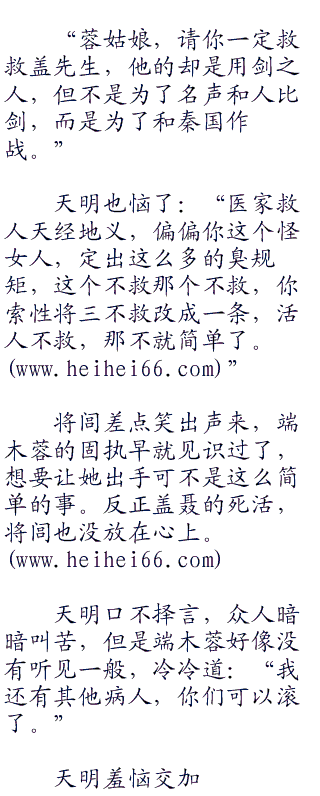 “蓉姑娘，请你一定救
救盖先生，他的却是用剑之
人，但不是为了名声和人比
剑，而是为了和秦国作
战。”
天明也恼了：“医家救
人天经地义，偏偏你这个怪
女人，定出这么多的臭规
矩，这个不救那个不救，你
索性将三不救改成一条，活
人不救，那不就简单了。
(www.heihei66.com)”
将闾差点笑出声来，端
木蓉的固执早就见识过了，
想要让她出手可不是这么简
单的事。反正盖聂的死活，
将闾也没放在心上。
(www.heihei66.com)
天明口不择言，众人暗
暗叫苦，但是端木蓉好像没
有听见一般，冷冷道：“我
还有其他病人，你们可以滚
了。”
天明羞恼交加